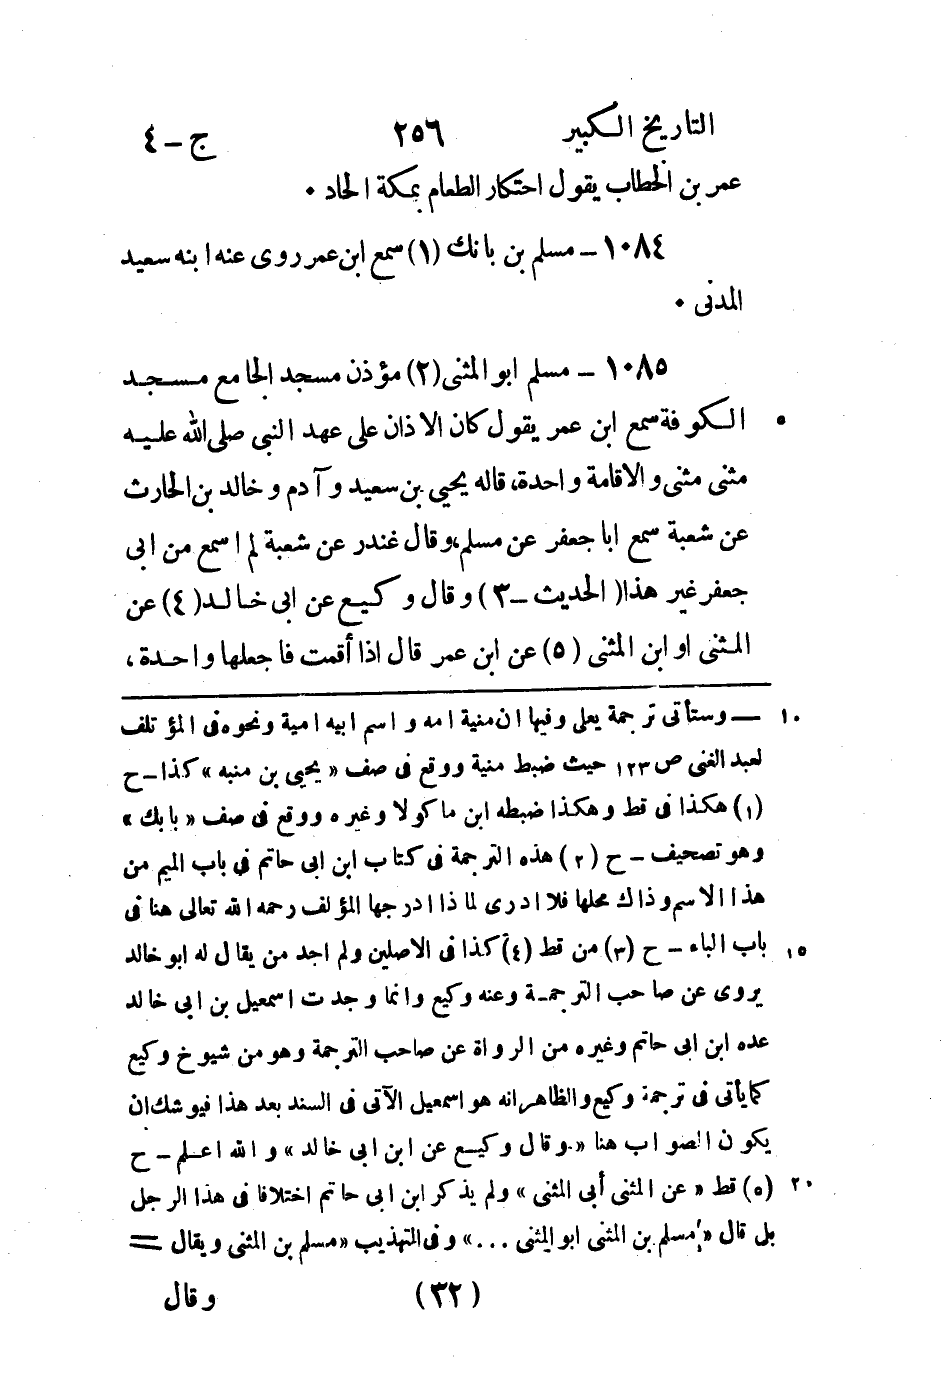 التاريخ الكبير ٢٥٦ ج - ٤
عمر بن الخطاب يقول احتكار الطعام بمكة الحاد ٠
١٠٨٤ - مسلم بن بانك (١) سمع ابن عمر روى عنه ابنه سعيد
المدنى ٠
١٠٨٥ - مسلم ابو المثنى (٢) مؤذن مسجد الجامع مسجد
الكوفة سمع ابن عمر يقول كان الاذان على عهد النبى صلى الله عليه ٥
مثنى مثنى والاقامة واحدة، قاله يحيى بن سعيد وآدم وخالد بن الحارث
عن شعبة سمع ابا جعفر عن مسلم، وقال غندر عن شعبة لم اسمع من ابى
جعفر غير هذا (الحديث - ٣) وقال وكيع عن ابى خالد (٤) عن
المثنى او ابن المثنى (٥) عن ابن عمر قال اذا أقمت فاجعلها واحدة،
— وستأتى ترجمة يعلى وفيها ان منية امه واسم ابيه امية ونحوه فى المؤتلف ١٠
لعبد الغنى ص ١٢٣ حيث ضبط منية ووقع فى صف « يحيى بن منبه » كذا - ح
(١) هكذا فى قط وهكذا ضبطه ابن ماكولا وغيره ووقع فى صف « بابك »
وهو تصحيف - ح (٢) هذه الترجمة فى كتاب ابن ابى حاتم فى باب الميم من
هذا الاسم وذاك محلها فلا ادرى لماذا ادرجها المؤلف رحمه الله تعالى هنا فى
باب الباء - ح (٣) من قط (٤) كذا فى الاصلين ولم اجد من يقال له ابو خالد ١٥
يروى عن صاحب الترجمة وعنه وكيع وانما وجدت اسمعيل بن ابى خالد
عده ابن ابى حاتم وغيره من الرواة عن صاحب الترجمة وهو من شيوخ وكيع
كما يأتى فى ترجمة وكيع والظاهر انه هو اسمعيل الآتى فى السند بعد هذا فيوشك ان
يكون الصواب هنا « وقال وكيع عن ابن ابى خالد » والله اعلم - ح
(٥) قط « عن المثنى أبى المثنى » ولم يذكر ابن ابى حاتم اختلافا فى هذا الرجل ٢٠
بل قال « مسلم بن المثنى ابو المثنى ... » وفى التهذيب « مسلم بن المثنى ويقال =
(٣٢) وقال